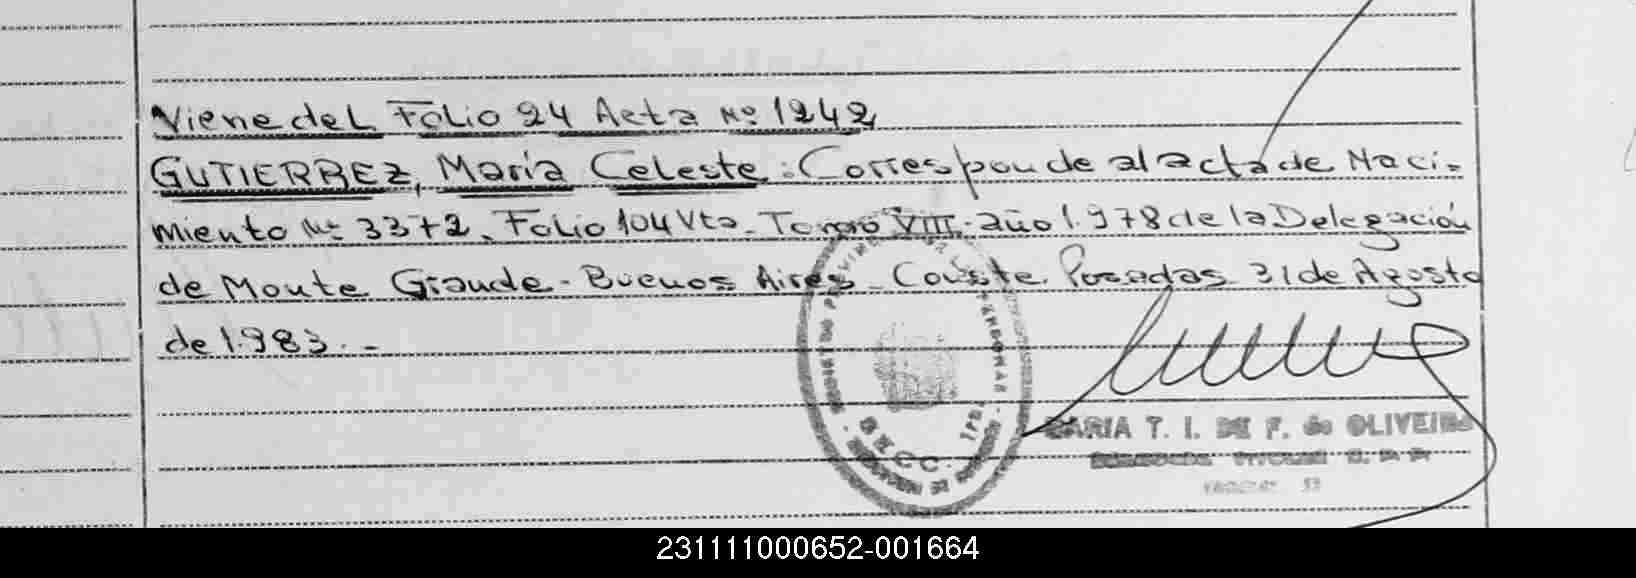 Viene del Folio 24 Acta Nº 1242
GUTIERREZ, María Celeste: Corresponde al acta de Naci-
miento Nº 3372. Folio 104 Vta. Tomo VIII- año 1.978 de la Delegación
de Monte Grande - Buenos Aires - Conste. Posadas 31 de Agosto
de 1.983. -
SECC.
MARIA T. I. DE F. de OLIVEIRA
231111000652-001664